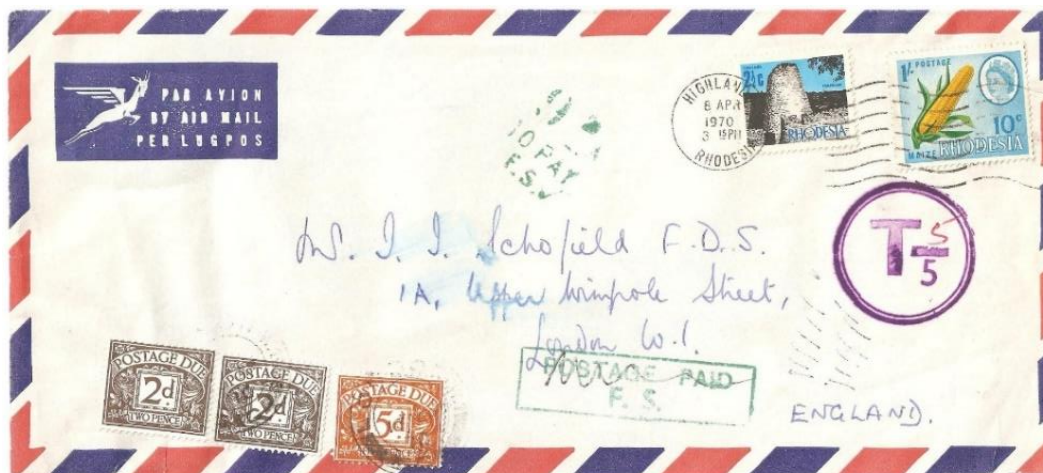 PAR AVION
BY AIR MAIL
PER LUGPOS
TO PAY
F.S.
HIGHLAN
8 APR
1970
3 15PM
RHODESIA
2½c
RHODESIA
1/- POSTAGE
10c
MAIZE RHODESIA
T 5/5
Schofield F.D.S.
1A, Upper Wimpole Street,
London W.1.
POSTAGE PAID
F. S.
ENGLAND.
POSTAGE DUE
2d
TWO PENCE
POSTAGE DUE
2d
TWO PENCE
POSTAGE DUE
5d